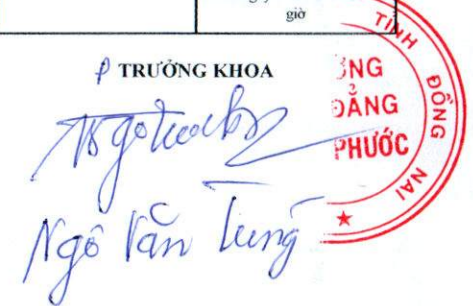 giờ
P TRƯỞNG KHOA
TỈNH ĐỒNG NAI
ĐẲNG
PHƯỚC
Ngô Văn Tùng